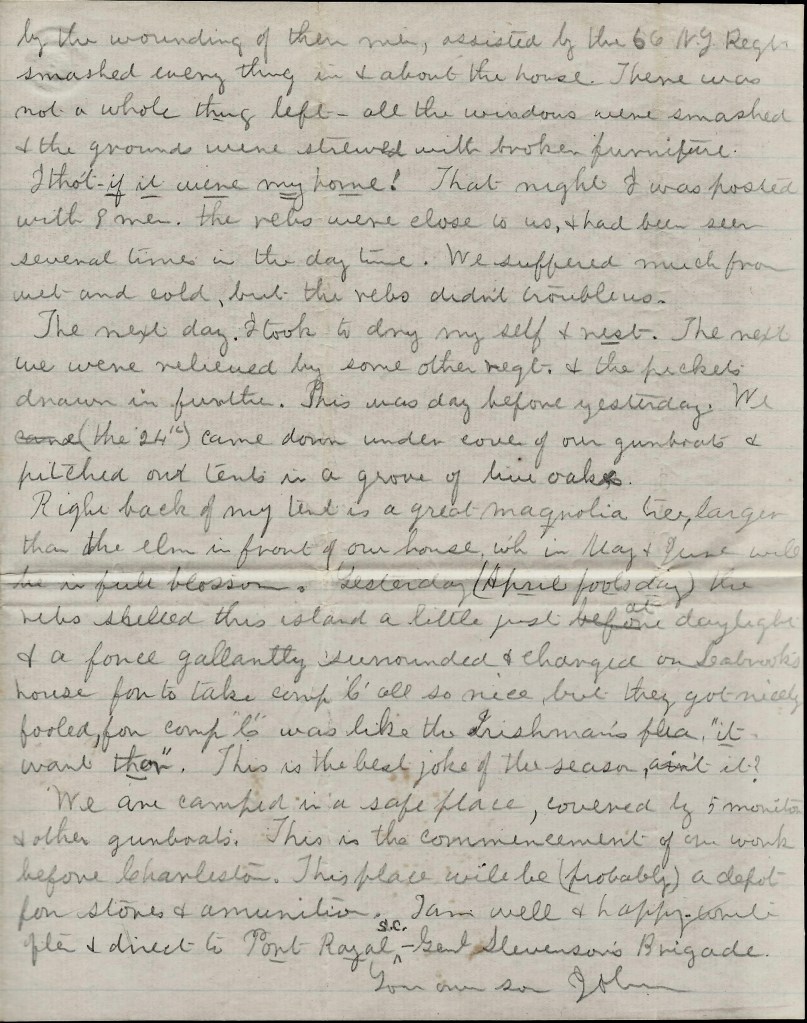 by the wounding of their men, assisted by the 56 N.Y. Regt
smashed every thing in & about the house. There was
not a whole thing left - all the windows were smashed
& the grounds were strewed with broken furniture.
I tho't - if it were my home! That night I was posted
with 8 men. the rebs were close to us, & had been seen
several times in the day time. We suffered much from
wet and cold, but the rebs didn't trouble us.
The next day. I took to dry my self & rest. The next
we were relieved by some other regt. & the pickets
drawn in further. This was day before yesterday. We
came (the 24th) came down under cover of our gunboats &
pitched our tents in a grove of live oaks.
Right back of my tent is a great magnolia tree, larger
than the elm in front of our house, wh in May & June will
be in full blossom. Yesterday (April fools day) the
rebs shelled this island a little just before at daylight
& a force gallantly surrounded & charged on Seabrook's
house for to take comp 'C' all so nice, but they got nicely
fooled, for comp "C" was like the Irishman's flea, "it
want thar". This is the best joke of the season, ain't it?
We are camped in a safe place, covered by 5 monitors
& other gunboats. This is the commencement of our work
before Charleston. This place will be (probably) a depot
for stores & amunition. I am well & happy - write
often & direct to Port Royal S.C. - Genl Stevenson's Brigade.
Your own son John